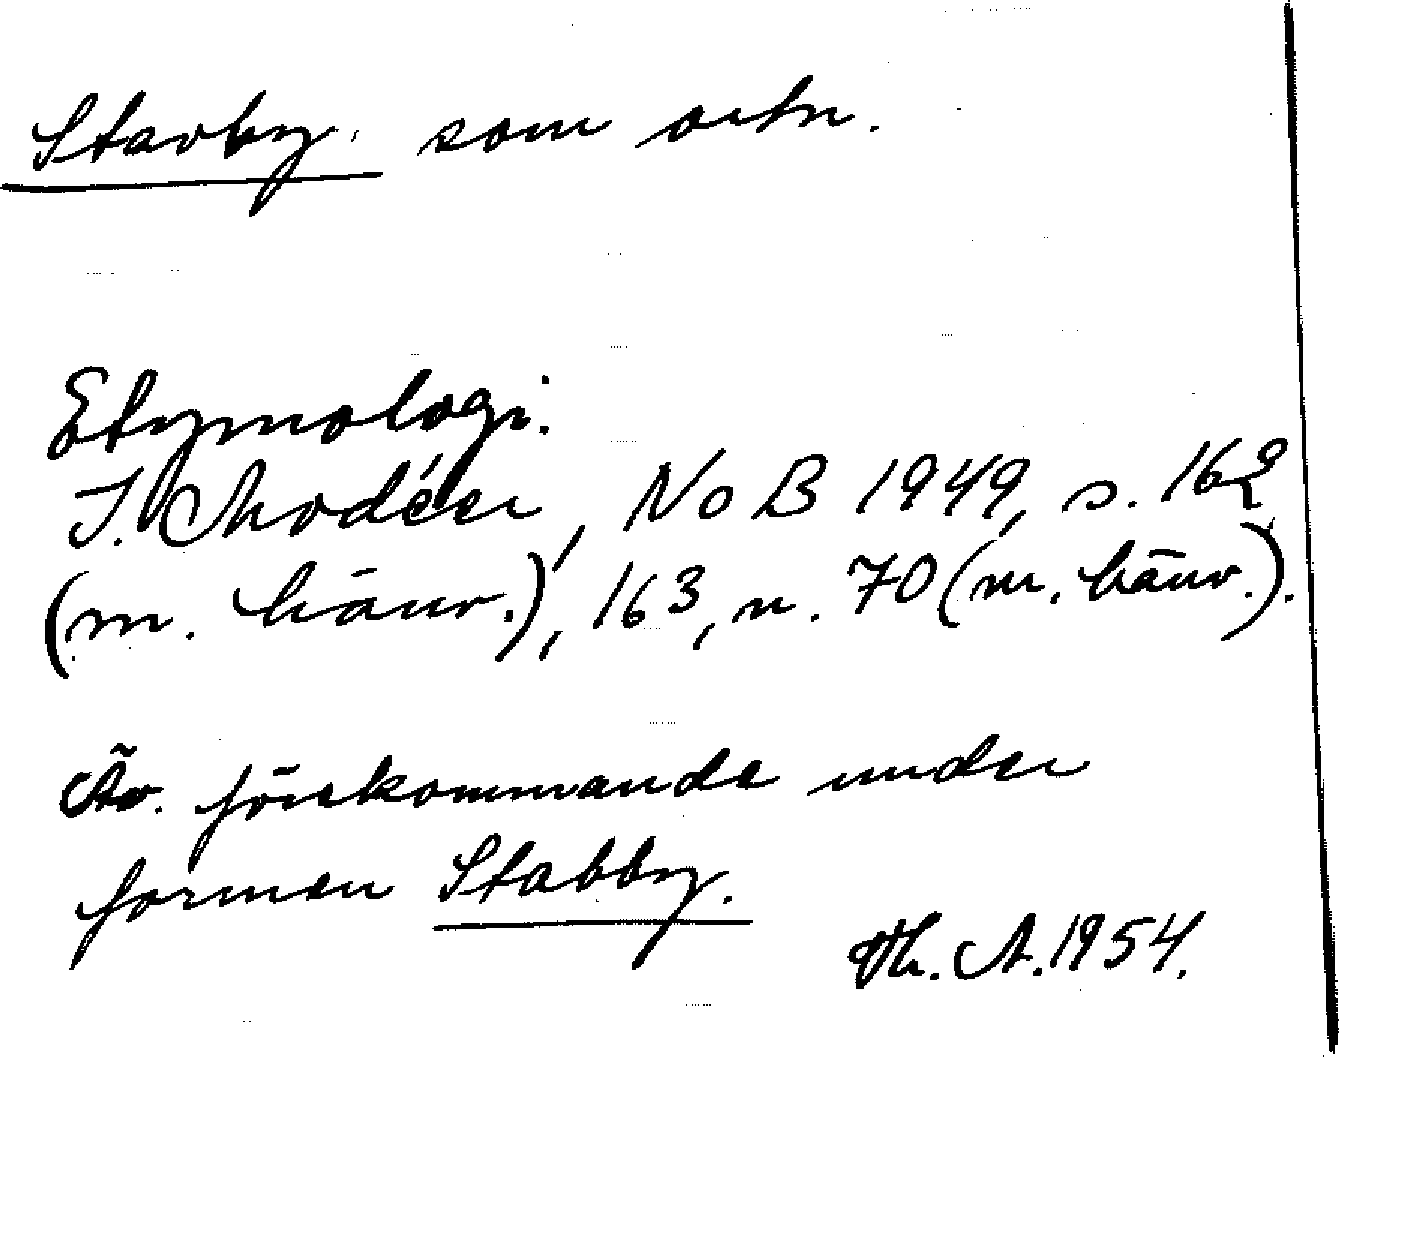 Stavby. som ortn.
Etymologi.
I. Modéer, NoB 1949, s. 162
(m. hänv.), 163, n. 70 (m. hänv.).
Äv. förekommande under
formen Stabby.
Th. A. 1954.